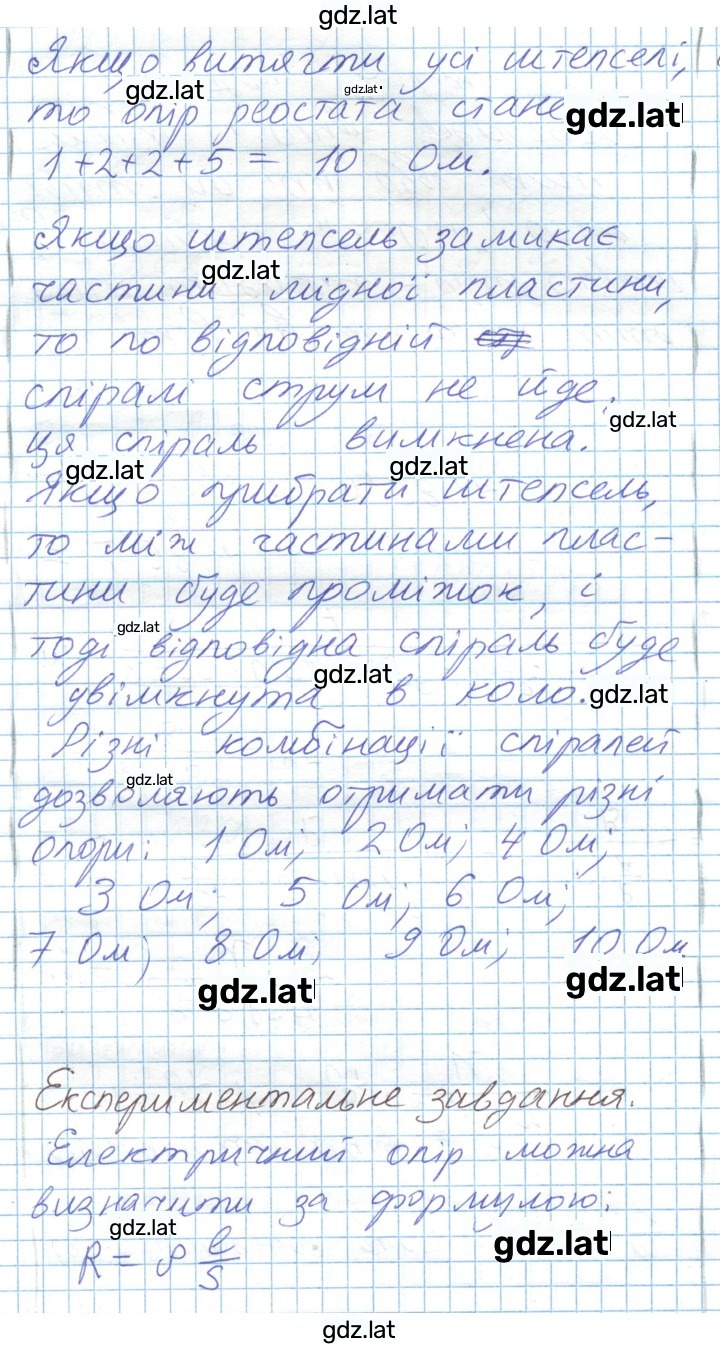 gdz.lat
Якщо витягти усі штепселі,
gdz.lat gdz.lat
то опір реостата стане gdz.lat
1+2+2+5 = 10 Ом.
Якщо штепсель замикає
gdz.lat
частини мідної пластини,
то по відповідній
спіралі струм не йде,
gdz.lat
ця спіраль вимкнена.
gdz.lat gdz.lat
Якщо прибрати штепсель,
то між частинами плас-
тини буде проміжок, і
gdz.lat
тоді відповідна спіраль буде
gdz.lat
увімкнута в коло. gdz.lat
Різні комбінації спіралей
gdz.lat
дозволяють отримати різні
опори: 1 Ом; 2 Ом; 4 Ом;
3 Ом; 5 Ом; 6 Ом;
7 Ом; 8 Ом; 9 Ом; 10 Ом
gdz.lat gdz.lat
Експериментальне завдання.
Електричний опір можна
визначити за формулою:
gdz.lat gdz.lat
R = ρ l/S
gdz.lat